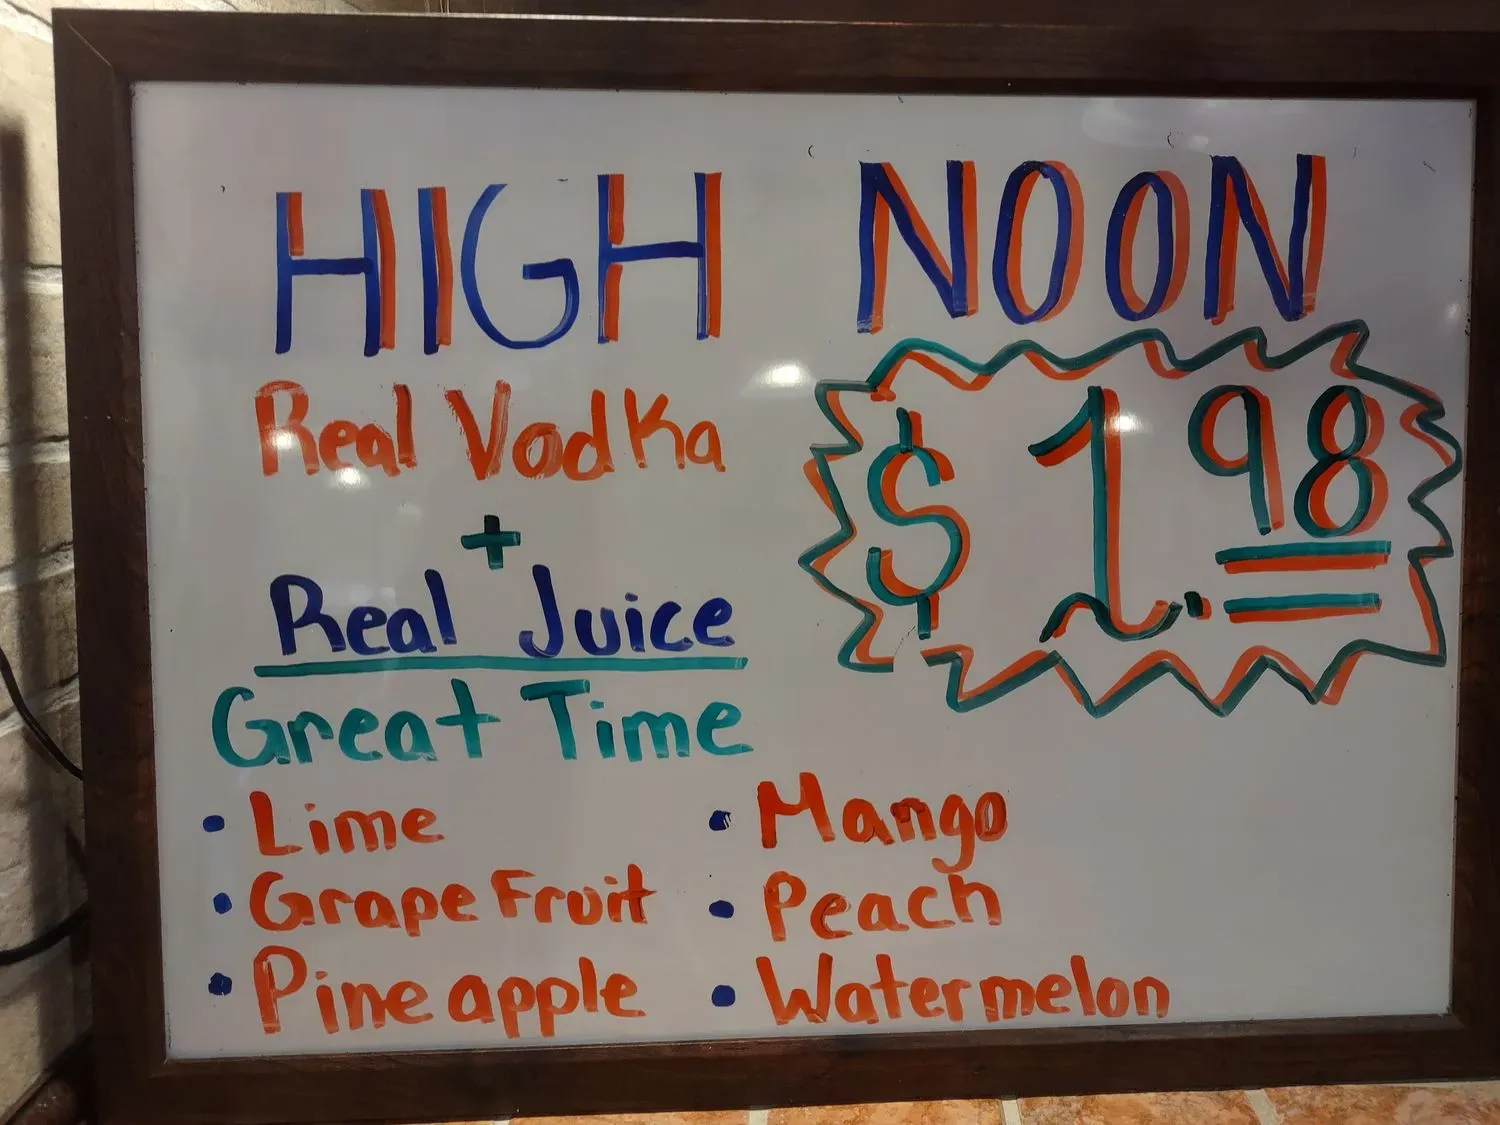 HIGH NOON
Real Vodka
+
Real Juice
Great Time
$1.98
• Lime
• Grape Fruit
• Pineapple
• Mango
• Peach
• Watermelon